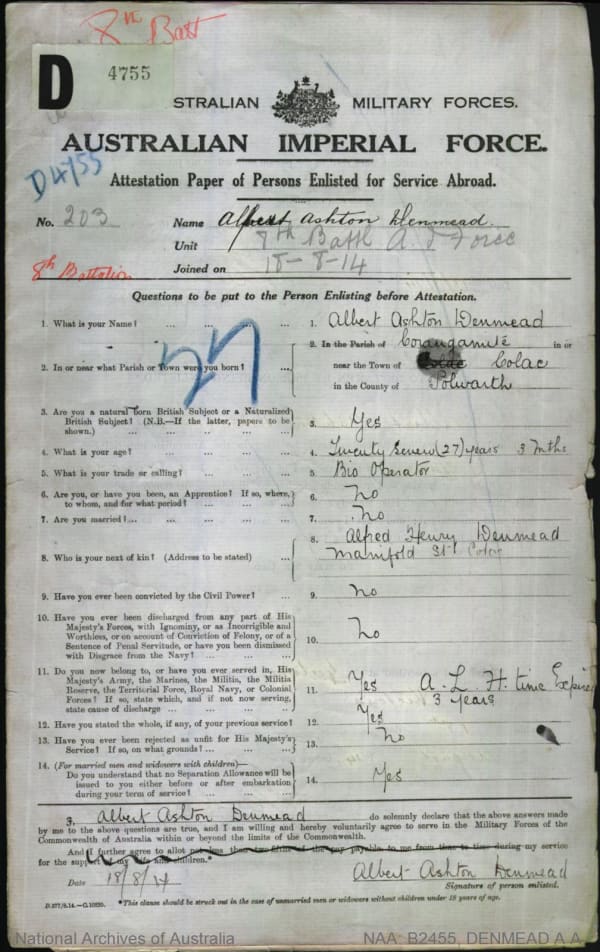 8th Batt
D 4755
STRALIAN MILITARY FORCES.
AUSTRALIAN IMPERIAL FORCE.
D4755
Attestation Paper of Persons Enlisted for Service Abroad.
No. 203 Name Albert Ashton Denmead.
Unit 8th Battn A I Force
8th Battalion
Joined on 18-8-14
Questions to be put to the Person Enlisting before Attestation.
1. What is your Name? ... ... ... ... 1. Albert Ashton Denmead
27
2. In or near what Parish or Town were you born? ... 2. In the Parish of Corangamite in or
near the Town of Colac
in the County of Polwarth
3. Are you a natural born British Subject or a Naturalized
British Subject? (N.B.—If the latter, papers to be
shown.) ... ... ... ... 3. Yes
4. What is your age? ... ... ... ... 4. Twenty Seven (27) years 3 mths
5. What is your trade or calling? ... ... ... 5. Bio Operator
6. Are you, or have you been, an Apprentice? If so, where,
to whom, and for what period? ... ... ... 6. No
7. Are you married? ... ... ... ... 7. No
8. Who is your next of kin? (Address to be stated) ... 8. Alfred Henry Denmead
Manifold St Colac
9. Have you ever been convicted by the Civil Power? ... 9. No
10. Have you ever been discharged from any part of His
Majesty's Forces, with Ignominy, or as Incorrigible and
Worthless, or on account of Conviction of Felony, or of a
Sentence of Penal Servitude, or have you been dismissed
with Disgrace from the Navy? ... ... ... 10. No
11. Do you now belong to, or have you ever served in, His
Majesty's Army, the Marines, the Militia, the Militia
Reserve, the Territorial Force, Royal Navy, or Colonial
Forces? If so, state which, and if not now serving,
state cause of discharge ... ... ... 11. Yes A. L. H. time Expired
3 years
12. Have you stated the whole, if any, of your previous service? 12. Yes
13. Have you ever been rejected as unfit for His Majesty's
Service? If so, on what grounds? ... ... ... 13. No
14. (For married men and widowers with children)—
Do you understand that no Separation Allowance will be
issued to you either before or after embarkation
during your term of service? ... ... ... 14. Yes
I, Albert Ashton Denmead do solemnly declare that the above answers made
by me to the above questions are true, and I am willing and hereby voluntarily agree to serve in the Military Forces of the
Commonwealth of Australia within or beyond the limits of the Commonwealth.
And I further agree to allot not less than of the pay payable to me from time to time during my service
for the support of my wife and children.*
Date 18/8/14 Albert Ashton Denmead
Signature of person enlisted.
*This clause should be struck out in the case of unmarried men or widowers without children under 18 years of age.
National Archives of Australia NAA: B2455, DENMEAD A A